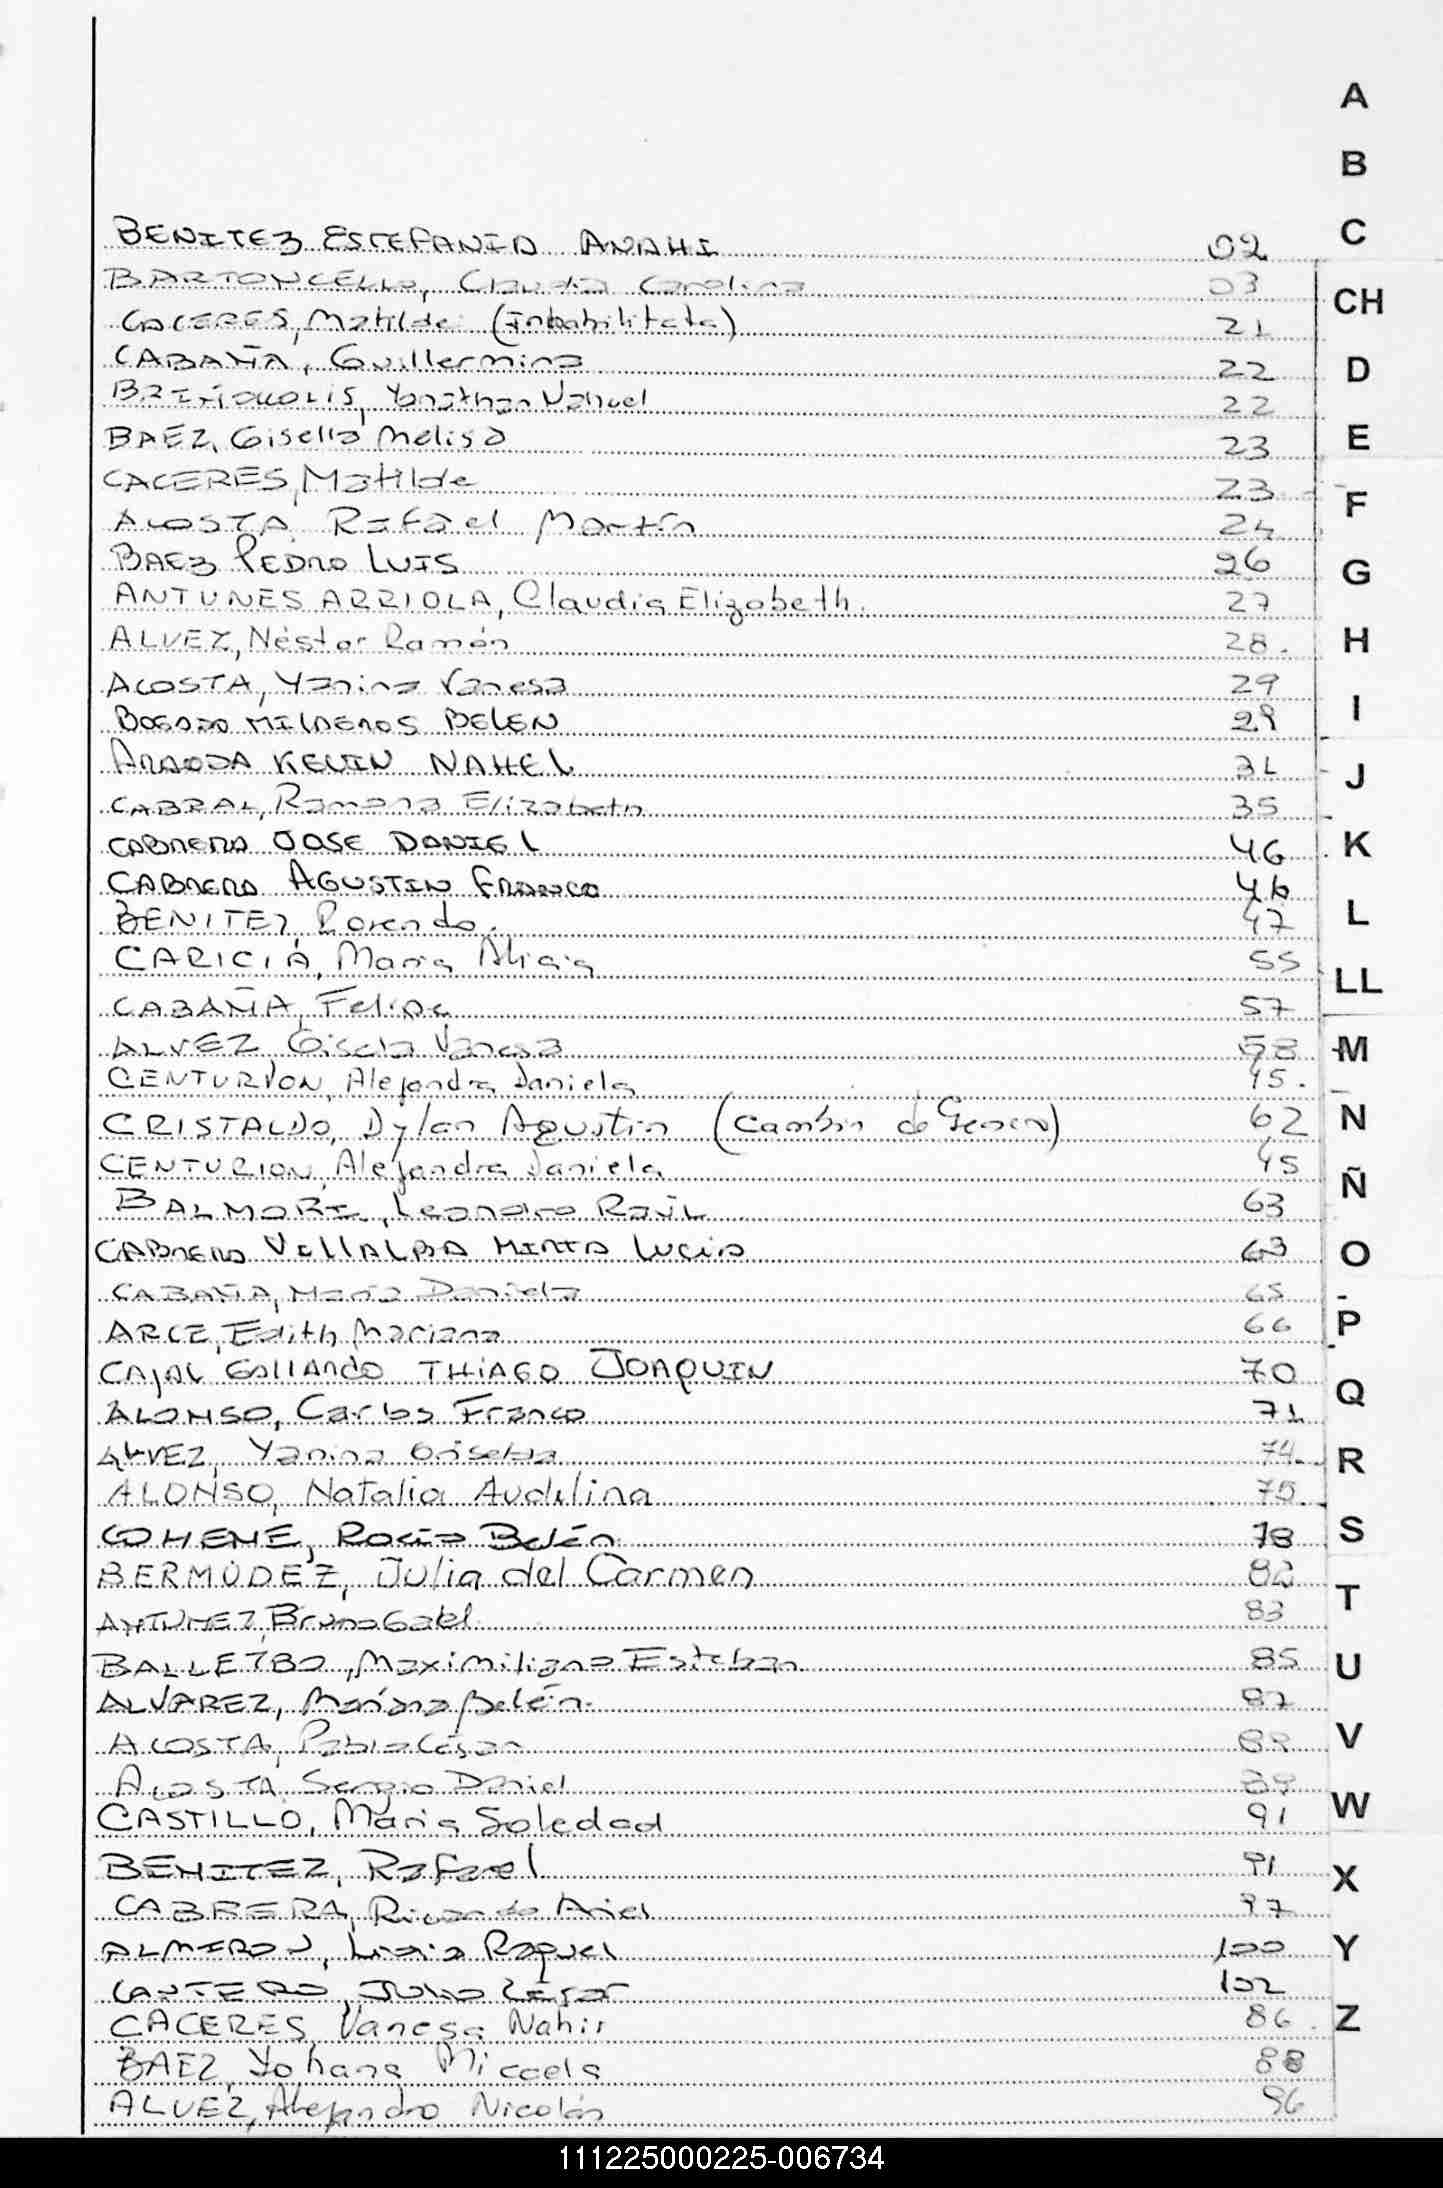 A
B
C
CH
D
E
F
G
H
I
J
K
L
LL
M
N
Ñ
O
P
Q
R
S
T
U
V
W
X
Y
Z
BENITEZ ESTEFANIA ANAHI 02
BARTONCELLO, Claudia Carolina 03
CACERES, Matilde (Inhabilitata) 21
CABAÑA, Guillermina 22
Yonathan Nahuel 22
BAEZ, Gisella Melisa 23
CACERES, Matilde 23
ACOSTA, Rafael Martín 24
BAEZ PEDRO LUIS 26
ANTUNES ARRIOLA, Claudia Elizabeth. 27
ALVEZ, Néstor Ramón 28.
ACOSTA, Yanina Vanesa 29
BOGADO MILAGROS BELEN 29
KEVIN NAHEL 31
CABRAL, Ramona Elizabeth 35
CABRERA JOSE DANIEL 46
CABRERA AGUSTIN FRANCO 46
BENITEZ, 47
CARICIA, Maria Alicia 55
CABAÑA, Felipe 57
ALVEZ, Gisela Vanesa 58
CENTURION, Alejandra Daniela 45.
CRISTALDO, Dylan Agustin (Cambio de Genero) 62
CENTURION, Alejandra Daniela 45
BALMORI, Leandro Raúl 63
CABRERA VILLALBA MIRTA LUCIA 63
CABAÑA, María Daniela 65
ARCE, Edith Mariana 66
CAJAL GALLARDO THIAGO JOAQUIN 70
ALONSO, Carlos Franco 71
ALVEZ, Yanina Griselda 74.
ALONSO, Natalia Audelina 75.
COHENE, Rocío Belén. 78
BERMÚDEZ, Julia del Carmen 82
ANTUNEZ, Bruno Gabel. 83
BALLETBO, Maximiliano Esteban 85
ALVAREZ, Mariana Belén. 87
ACOSTA, Pablo César 89
ACOSTA, Sergio Daniel 89
CASTILLO, Maria Soledad 91
BENITEZ, Rafael 91
CABRERA, Ricardo Ariel 97
ALMIRON, Raquel 100
CANTERO, Julio César 102
CACERES, Vanesa Nahir 86.
BAEZ, Yohana Micaela 88
ALVEZ, Alejandro Nicolás 96
111225000225-006734